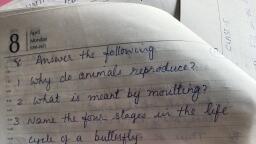 8 April
Monday
8 Answer the following
1 Why do animals reproduce?
2 what is meant by moulting?
3 Name the four stages in the life
cycle of a butterfly